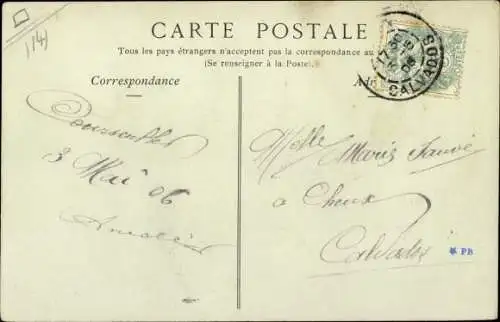 (14)
CARTE POSTALE
Tous les pays étrangers n'acceptent pas la correspondance au
(Se renseigner à la Poste)
Correspondance
Adr
CALVADOS
Courseulles
3 Mai 06
Melle Maria
à Cheux
Calvados
* PB